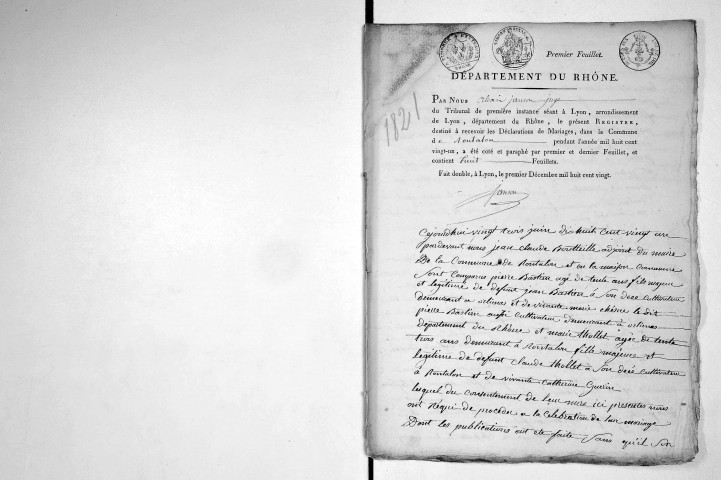 Premier Feuillet.
DÉPARTEMENT DU RHÔNE.
1821
PAR NOUS janson juge
du Tribunal de première instance séant à Lyon, arrondissement
de Lyon, département du Rhône, le présent REGISTRE,
destiné à recevoir les Déclarations de Mariages, dans la Commune
de Rontalon pendant l'année mil huit cent
vingt-un, a été coté et paraphé par premier et dernier Feuillet, et
contient huit Feuillets.
Fait double, à Lyon, le premier Décembre mil huit cent vingt.
janson
Cejourdhui vingt trois juin dixhuit cent vingt un
pardevant nous jean claude Boutteille adjoint du maire
De la Commune de Rontalon et en la maison commune
Sont comparus pierre Bastien agé de trente ans fils majeur
et legitime de defunt jean Bastien à Son decé Cultivateur
demeurant a orlienas et de vivante marie chêne le dit
pierre Bastien aussi Cultivateur demeurant à orlienas
département du Rhône et marie thollet agée de trente
trois ans demeurant à Rontalon fille majeure et
legitime de defunt Claude thollet à Son decé cultivateur
à Rontalon et de vivante catherine Guerin
lesquel du consentement de leur mere ici presentes nous
ont Requi de proceder a la celebration de leur mariage
Dont les publications ont eté faite Sans qu'il Soit